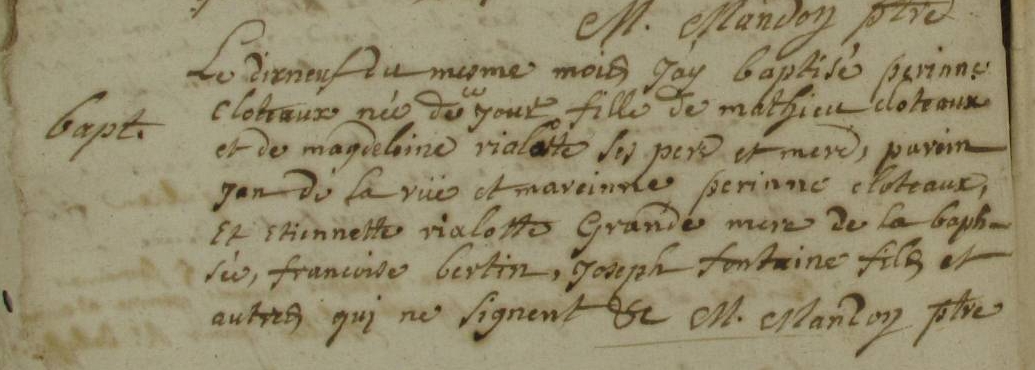 M. Mandoy ptre
Le dixneuf du mesme mois Jay baptisé perinne
bapt. cloteaux née de ce jour fille de mathieu cloteaux
et de magdeleine rialotte ses pere et mere, parein
Jan de la rüe et mareinne perinne cloteaux,
Et Etiennette rialotte Grande mere de la bapti-
sée, francoise bertin, Joseph fontaine fils et
autres qui ne signent &c M. Mandoy ptre